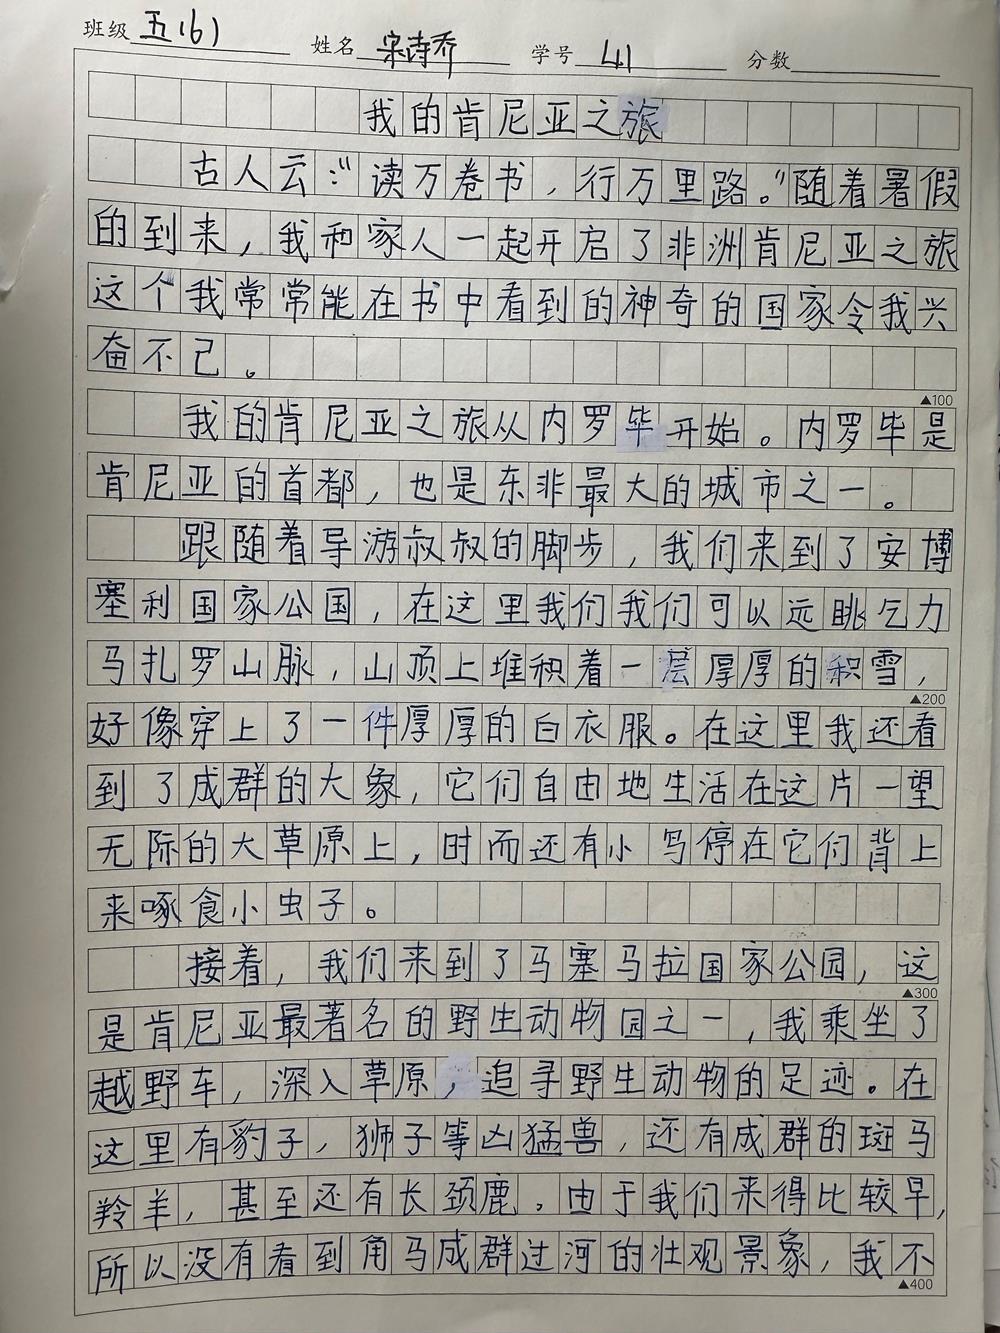 班级 五(6) 姓名 宋诗乔 学号 41 分数
我的肯尼亚之旅
古人云:“读万卷书,行万里路。”随着暑假
的到来,我和家人一起开启了非洲肯尼亚之旅
这个我常常能在书中看到的神奇的国家令我兴
奋不已。
▲100
我的肯尼亚之旅从内罗毕开始。内罗毕是
肯尼亚的首都,也是东非最大的城市之一。
跟随着导游叔叔的脚步,我们来到了安博
塞利国家公国,在这里我们我们可以远眺乞力
马扎罗山脉,山顶上堆积着一层厚厚的积雪,
▲200
好像穿上了一件厚厚的白衣服。在这里我还看
到了成群的大象,它们自由地生活在这片一望
无际的大草原上,时而还有小鸟停在它们背上
来啄食小虫子。
接着,我们来到了马塞马拉国家公园,这
▲300
是肯尼亚最著名的野生动物园之一,我乘坐了
越野车,深入草原,追寻野生动物的足迹。在
这里有豹子,狮子等凶猛兽,还有成群的斑马
羚羊,甚至还有长颈鹿。由于我们来得比较早,
所以没有看到角马成群过河的壮观景象,我不
▲400